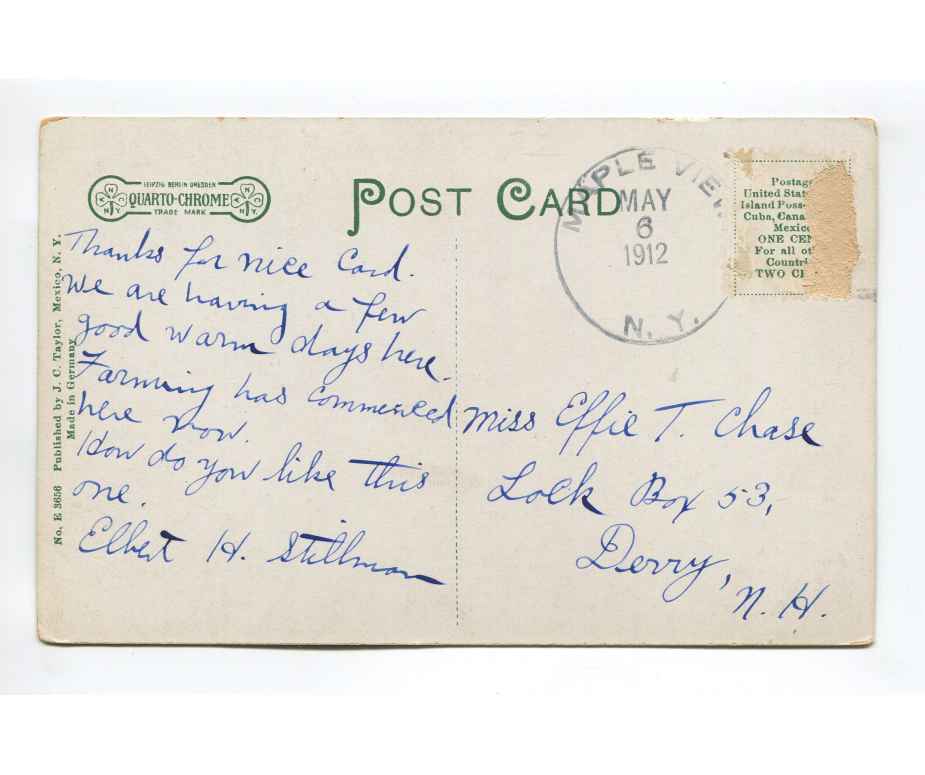 LEIPZIG BERLIN DRESDEN
QUARTO-CHROME
TRADE MARK
POST CARD
MAPLE VIEW
MAY
6
1912
N. Y.
Postag
United Stat
Island Poss
Cuba, Cana
Mexico
ONE CEN
For all ot
Countri
TWO C
No. E 3656 Published by J. C. Taylor, Mexico, N. Y.
Made in Germany
Thanks for nice Card.
We are having a few
good warm days here.
Farming has commenced
here now.
How do you like this
one.
Elbert H. Stillman
Miss Effie T. Chase
Lock Box 53,
Derry,
N. H.